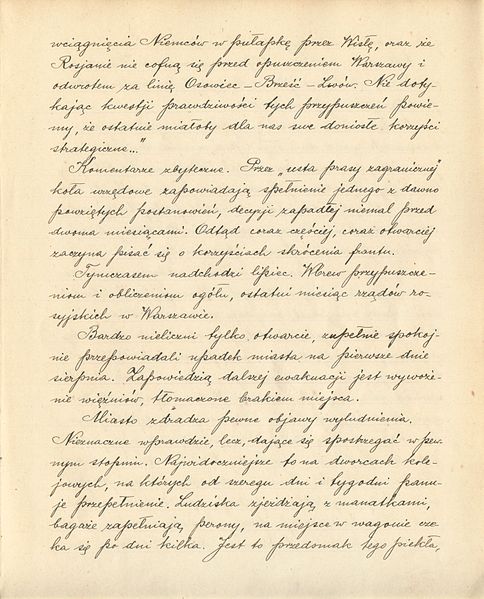 wciągnięcia Niemców w pułapkę przez Wisłę, oraz że
Rosjanie nie cofną się przed opuszczeniem Warszawy i
odwrotem za linię Osowiec – Brześć – Lwów. Nie doty-
kając kwestji prawdziwości tych przypuszczeń powie-
my, że ostatnie miałoby dla nas swe doniosłe korzyści
strategiczne..."
Komentarze zbyteczne. Przez „usta prasy zagranicznej"
koła urzędowe zapowiadają spełnienie jednego z dawno
powziętych postanowień, decyzji zapadłej niemal przed
dwoma miesiącami. Odtąd coraz częściej, coraz otwarciej
zaczyna pisać się o korzyściach skrócenia frontu.
Tymczasem nadchodzi lipiec. Wbrew przypuszcze-
niom i obliczeniom ogółu, ostatni miesiąc rządów ro-
syjskich w Warszawie.
Bardzo nieliczni tylko otwarcie, zupełnie spokoj-
nie przepowiadali upadek miasta na pierwsze dnie
sierpnia. Zapowiedzią dalszej ewakuacji jest wywoże-
nie więźniów, tłomaczone brakiem miejsca.
Miasto zdradza pewne objawy wyludnienia.
Nieznaczne wprawdzie, lecz dające się spostrzegać w pew-
nym stopniu. Najwidoczniejsze to na dworcach kole-
jowych, na których od szeregu dni i tygodni panu-
je przepełnienie. Ludziska zjeżdżają z manatkami,
bagaże zapełniają perony, na miejsce w wagonie cze-
ka się po dni kilka. Jest to przedsmak tego piekła,